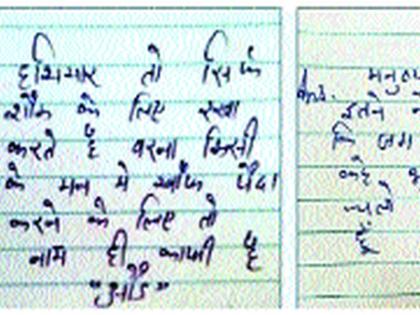 हथियार तो सिर्फ
शौक के लिए रखा
करते हैं वरना किसी
के मन मे खौफ पैदा
करने के लिए तो
नाम ही काफी है
Ans. मनुष्य
इतने
कि जग
कहे